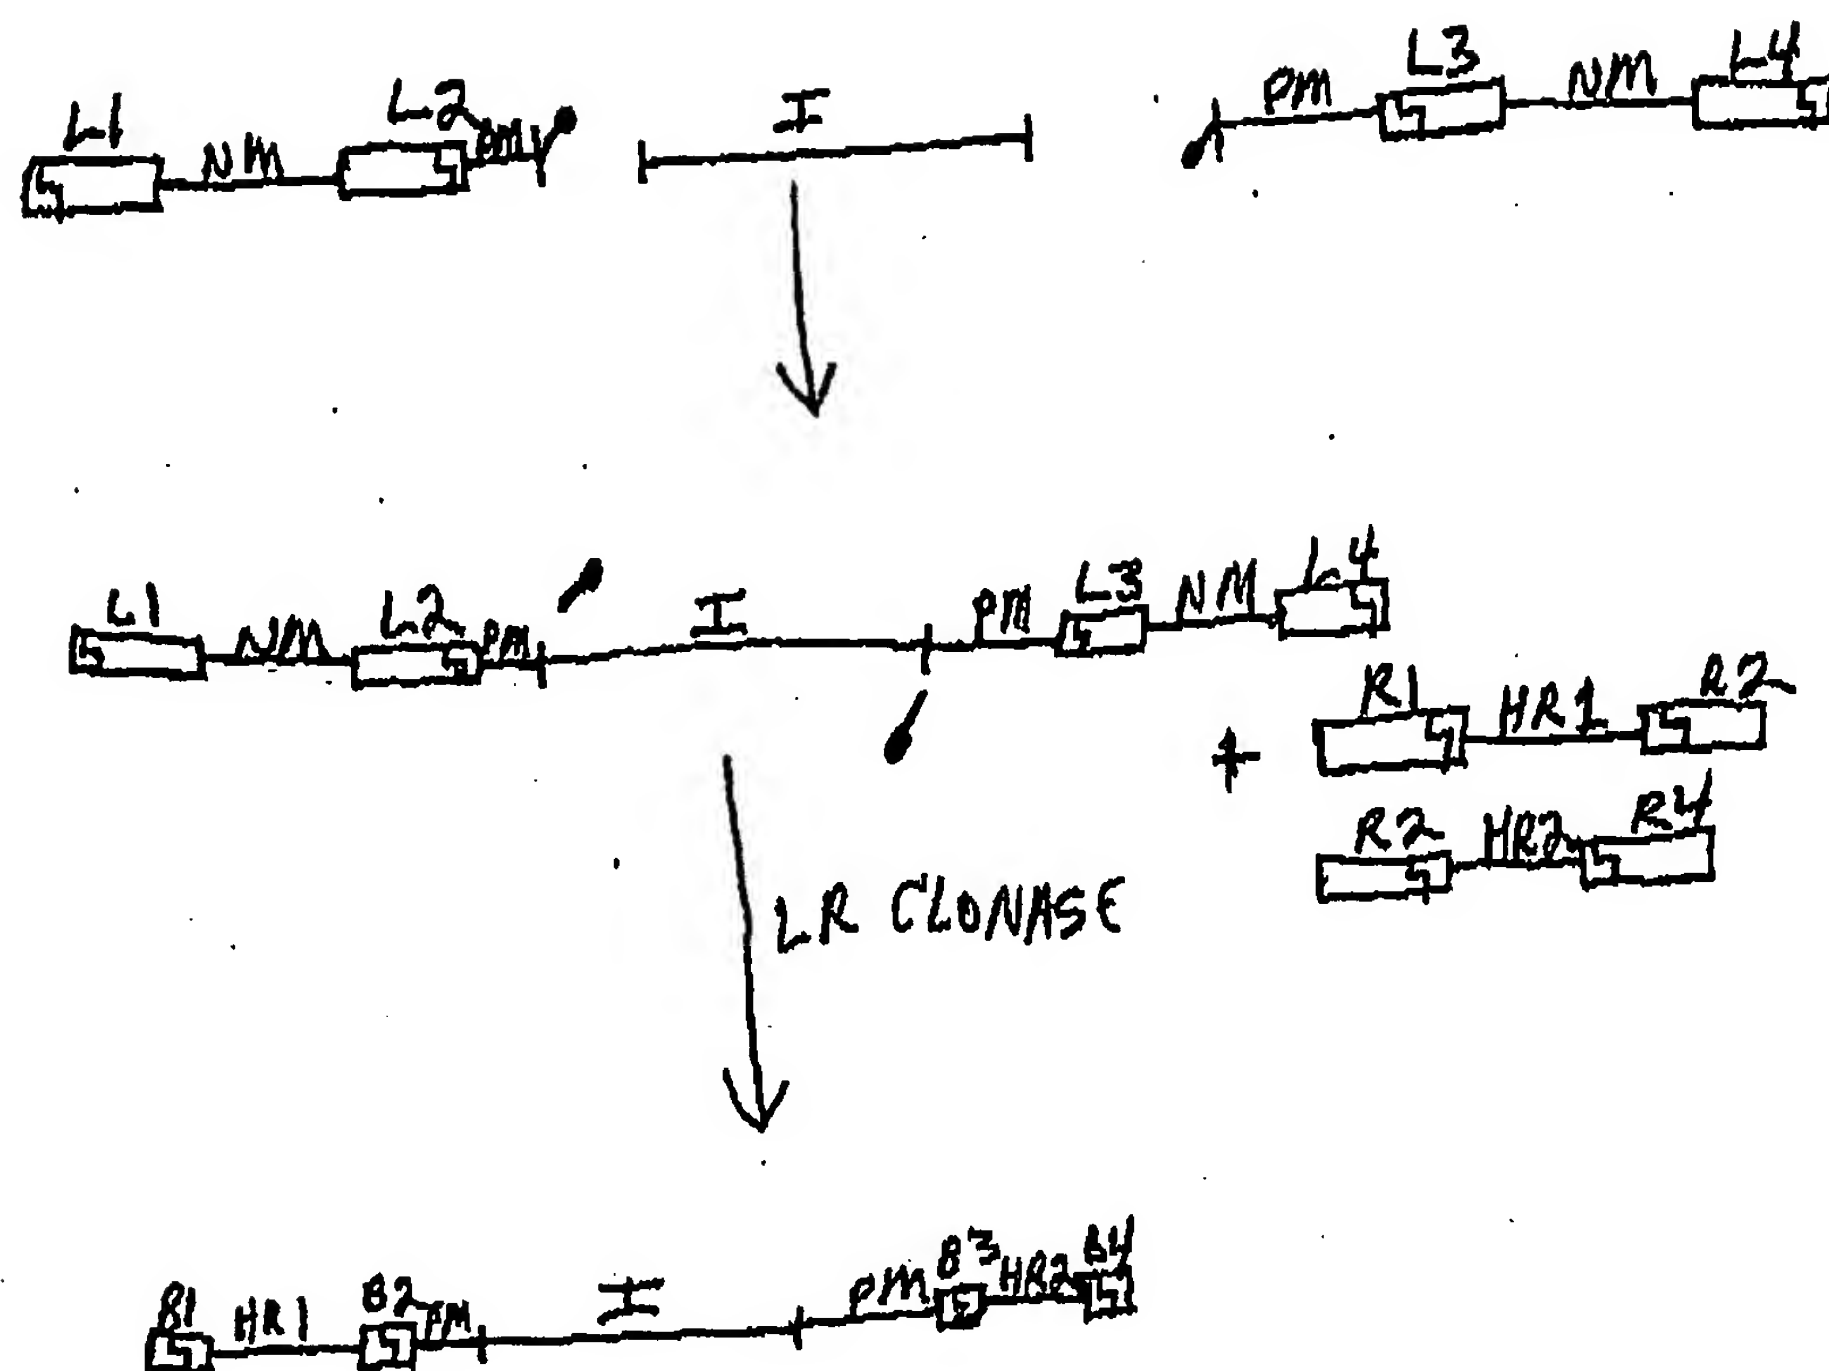 L1 NM L2 PM I PM L3 NM L4
L1 NM L2 PM I PM L3 NM L4
+ R1 HR1 R2
R2 HR2 R4
LR CLONASE
B1 HR1 B2 PM I PM B3 HR2 B4